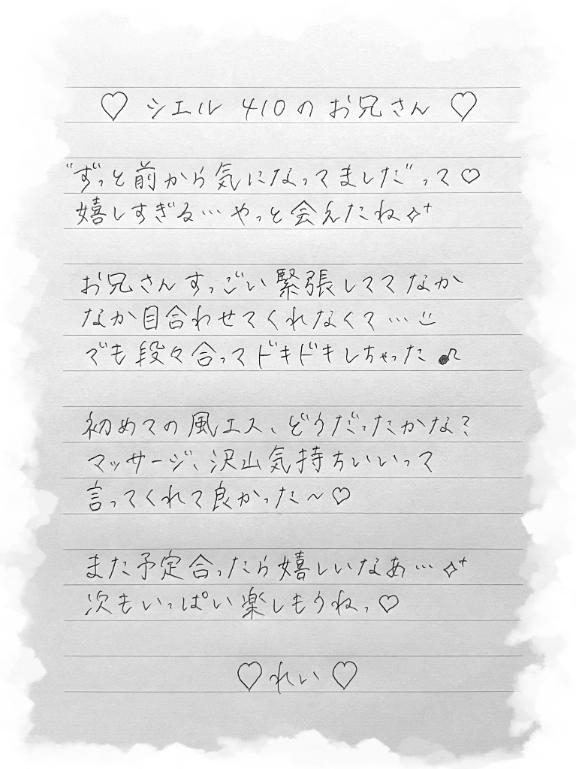 ♡ シエル 410のお兄さん ♡
"ずっと前から気になってました"って♡
嬉しすぎる…やっと会えたね✧⁺
お兄さんすっごい緊張しててなか
なか目合わせてくれなくて…
でも段々合ってドキドキしちゃった♪
初めての風エス、どうだったかな?
マッサージ、沢山気持ちいいって
言ってくれて良かった〜♡
また予定合ったら嬉しいなあ…✧⁺
次もいっぱい楽しもうねっ♡
♡れい♡